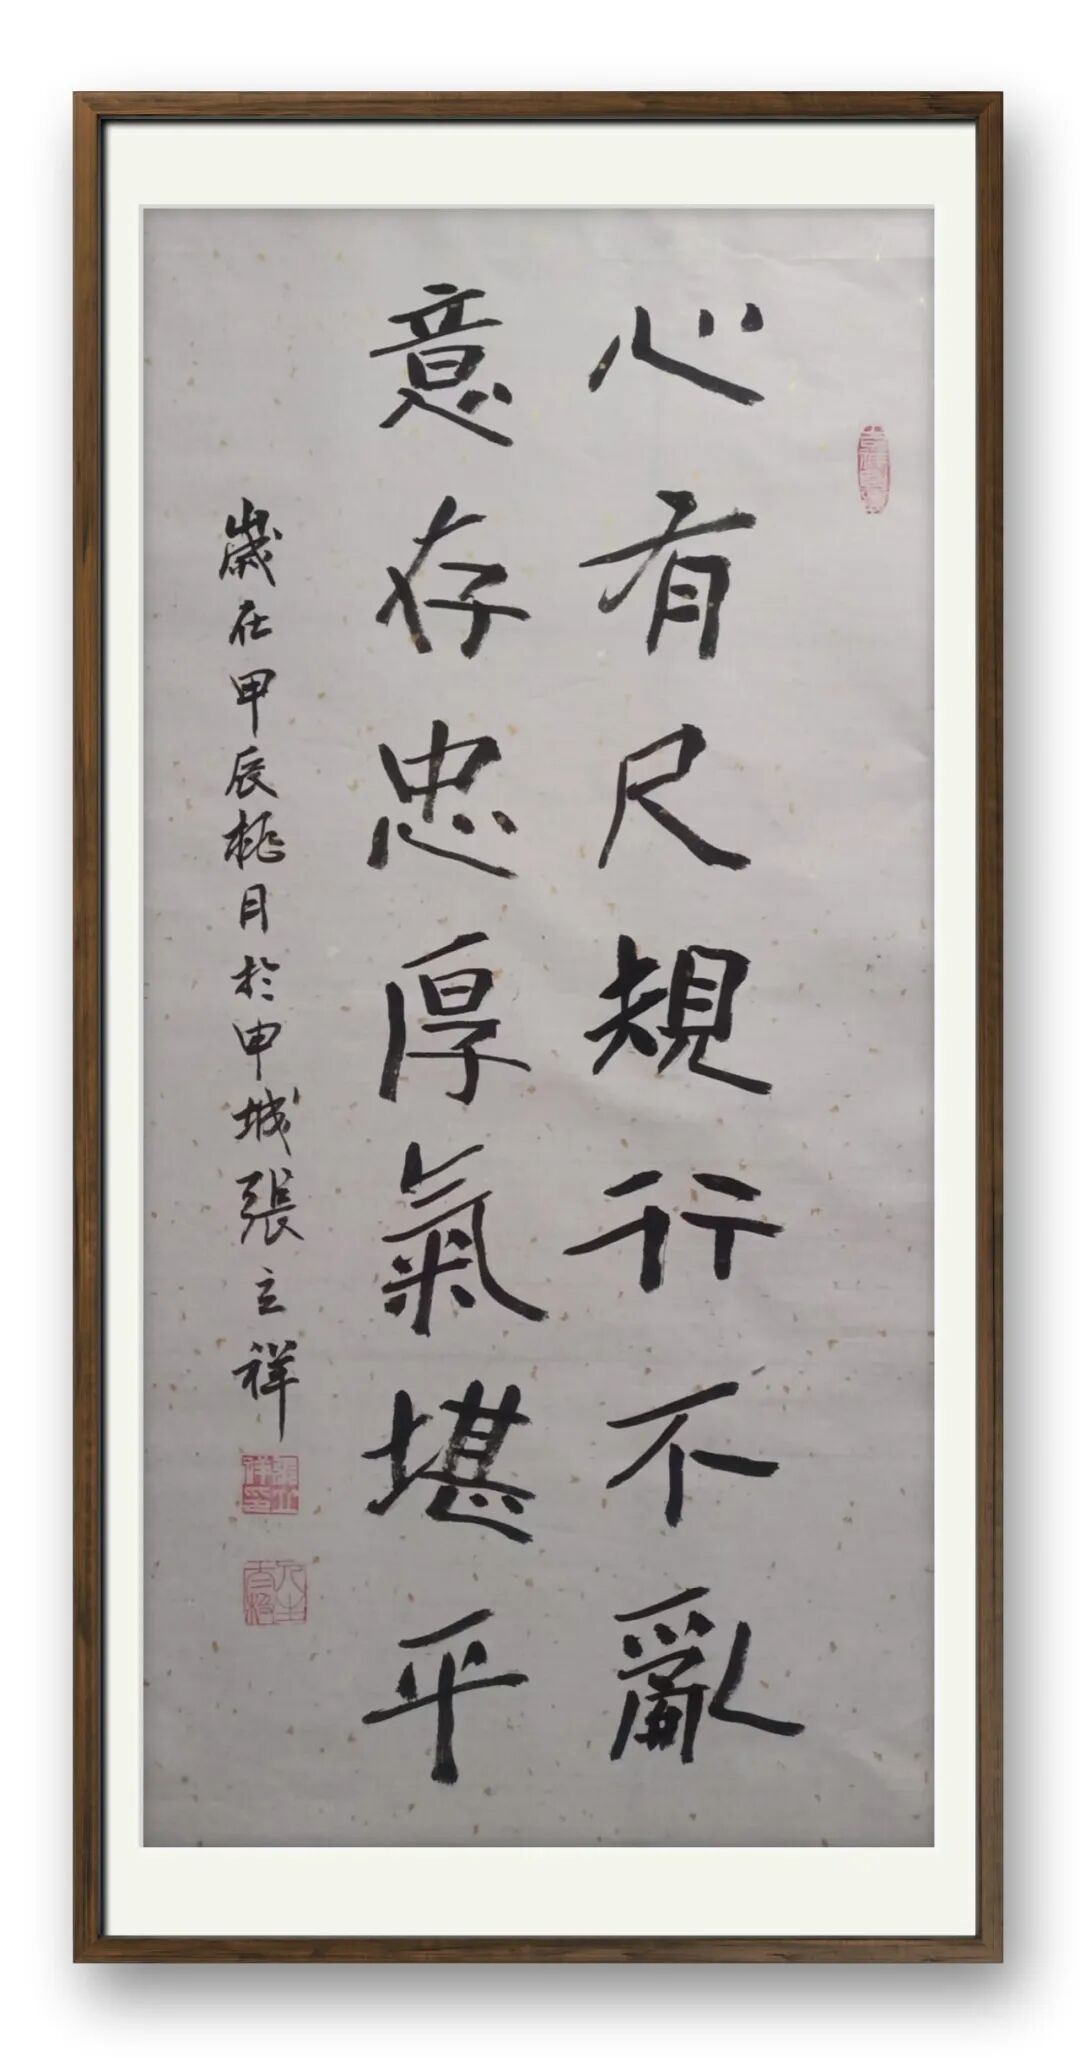 心有尺規行不亂
意存忠厚氣堪平
歲在甲辰桃月於申城張立祥
張立祥印